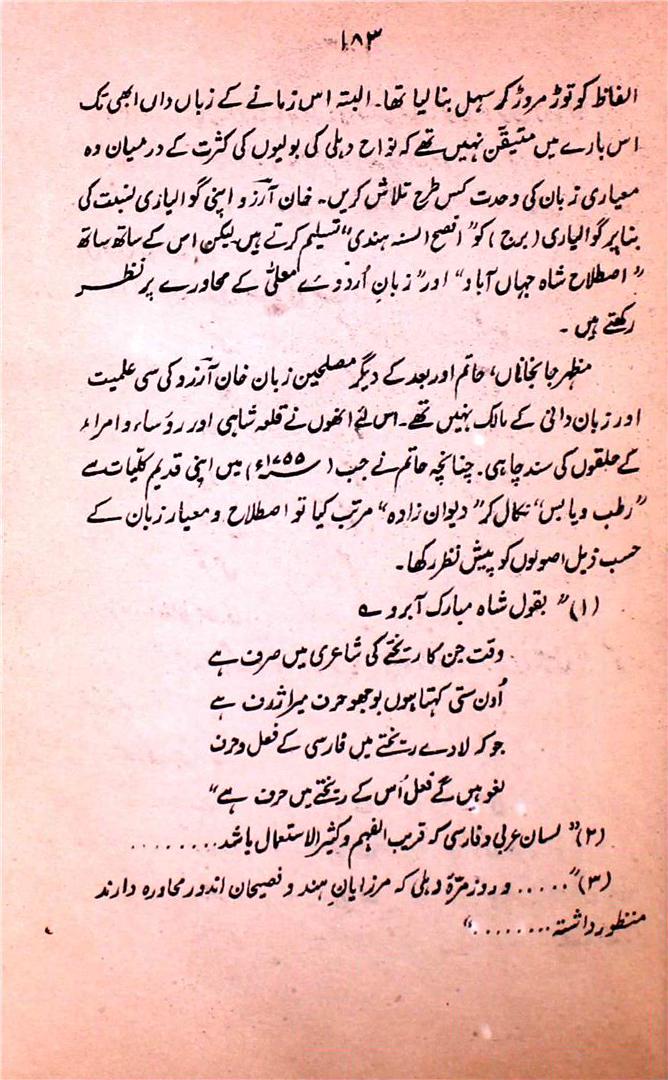 ۱۸۳
الفاظ کو توڑ مروڑ کر سہل بنا لیا تھا۔ البتہ اس زمانے کے زباں داں ابھی تک
اس بارے میں متیقن نہیں تھے کہ نواح دہلی کی بولیوں کی کثرت کے درمیان وہ
معیاری زبان کی وحدت کس طرح تلاش کریں۔ خان آرزو اپنی گوالیاری نسبت کی
بنا پر گوالیاری (برج) کو "افصح السنہ ہندی" تسلیم کرتے ہیں لیکن اس کے ساتھ ساتھ
"اصطلاح شاہ جہاں آباد" اور "زبانِ اُردوئے معلیٰ" کے محاورے پر نظر
رکھتے ہیں۔
مظہر جانجاناں، حاتم اور بعد کے دیگر مصلحین زبان خان آرزو کی سی علمیت
اور زبان دانی کے مالک نہیں تھے۔ اس لئے انھوں نے قلعہ شاہی اور روساء و امراء
کے حلقوں کی سند چاہی۔ چنانچہ حاتم نے جب (۱۷۵۵ء) میں اپنی قدیم کلیات سے
"رطب و یابس" نکال کر "دیوان زادہ" مرتب کیا تو اصطلاح و معیار زبان کے
حسب ذیل اصولوں کو پیش نظر رکھا۔
(۱) "بقول شاہ مبارک آبرو ے
وقت جن کا ریختے کی شاعری میں صرف ہے
اُون ستی کہتا ہوں بوجھو حرف میرا ژرف ہے
جو کہ لادے ریختے میں فارسی کے فعل و حرف
لغو ہیں گے فعل اُس کے ریختے میں حرف ہے"
(۲) "لسان عربی و فارسی کہ قریب الفہم و کثیر الاستعمال باشد........
(۳) "..... و روزمرّہ دہلی کہ مرزایانِ ہند و فصیحان اندور محاورہ دارند
منظور داشتہ........"